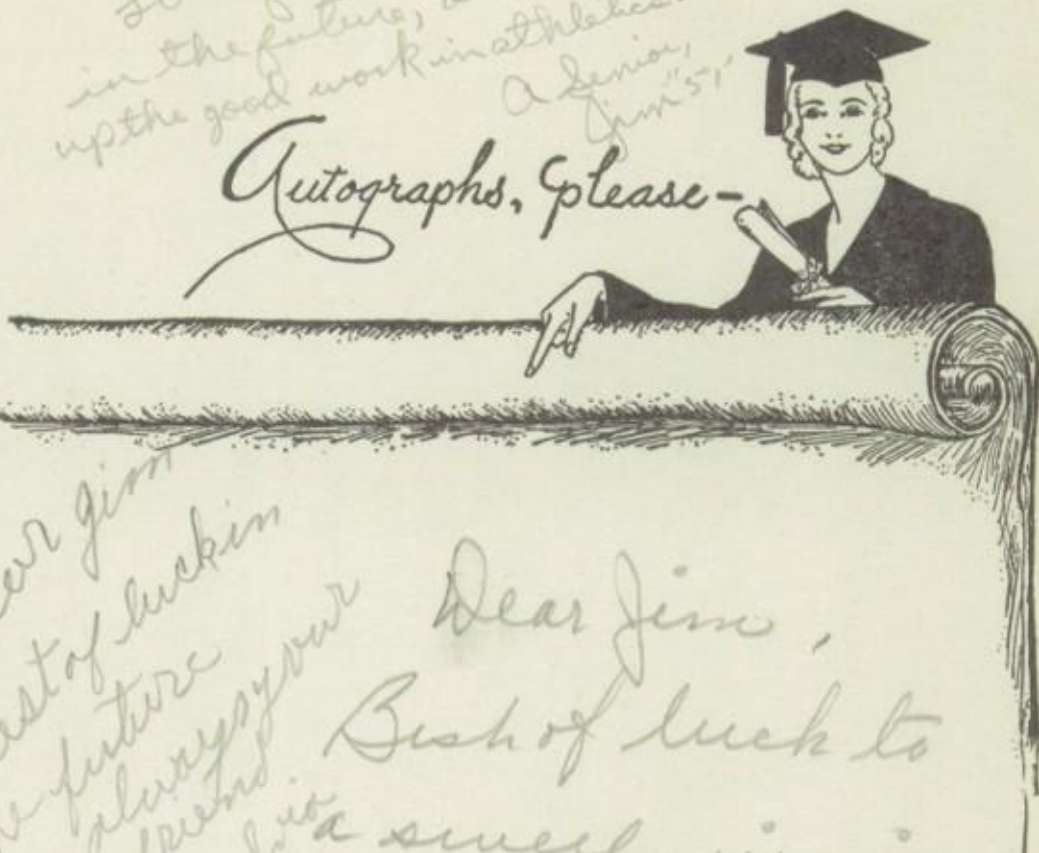 in the future,
up the good work in athletics.
A Senior,
Jim "51"
Autographs, please-
gim
of luck in
future
always your
friend
Dear Jim,
Bish of luck to
a swell